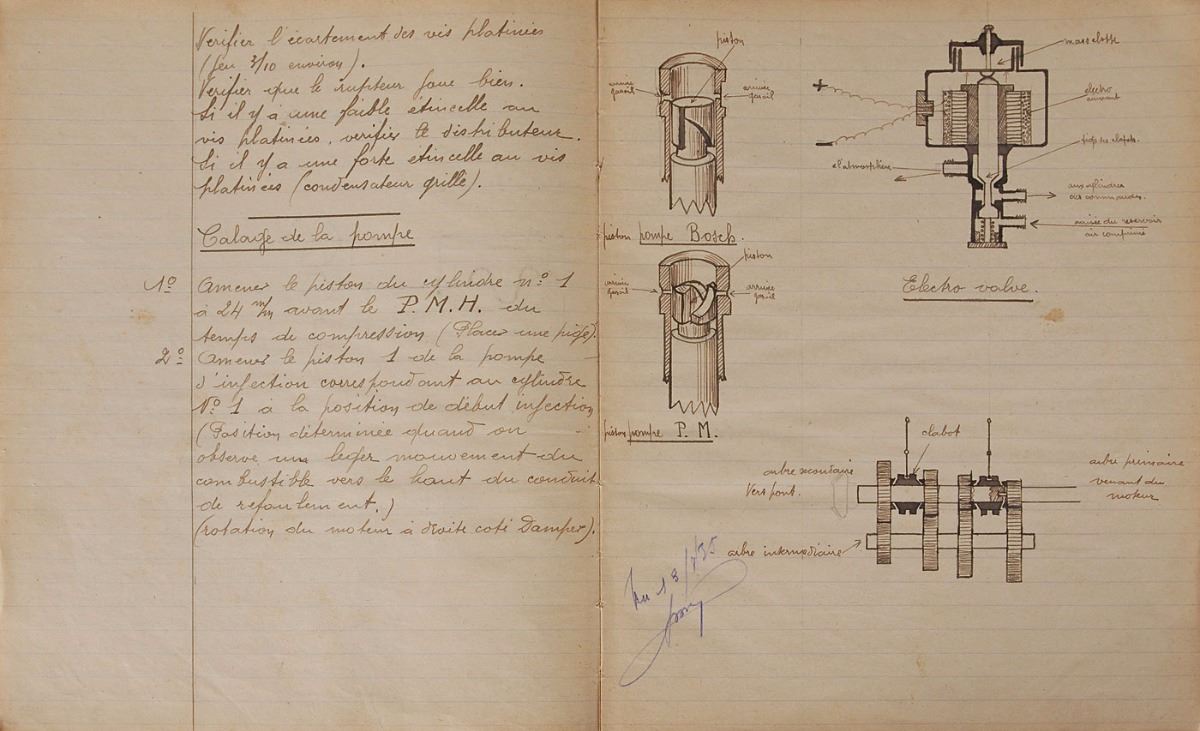 Verifier l'écartement des vis platinées
(jeu 3/10 environ).
Verifier que le rupteur joue bien.
Si il y a une faible étincelle au
vis platinées, verifier le distributeur.
Si il y a une forte étincelle au vis
platinées (condensateur grillé).
Calage de la pompe
1º Amener le piston du cylindre nº 1
à 24 m/m avant le P.M.H. du
temps de compression (Placer une pige).
2º Amener le piston 1 de la pompe
d'injection correspondant au cylindre
Nº 1 à la position de début injection
(Position déterminée quand on
observe un leger mouvement du
combustible vers le haut du conduit
de refoulement.)
(rotation du moteur à droite coté Damper).
piston
arrivée
gasoil
arrivée
gasoil
piston pompe Bosch.
piston
arrivée
gasoil
arrivée
gasoil
piston pompe P.M.
+
-
masselotte
electro
aimant
à l'atmosphère
tige des clapets.
aux cylindres
de commandes.
arrivée du reservoir
air comprimé
Electro valve.
clabot
arbre secondaire
Vers pont.
arbre primaire
venant du
moteur
arbre intermédiaire
Vu 13/7/35